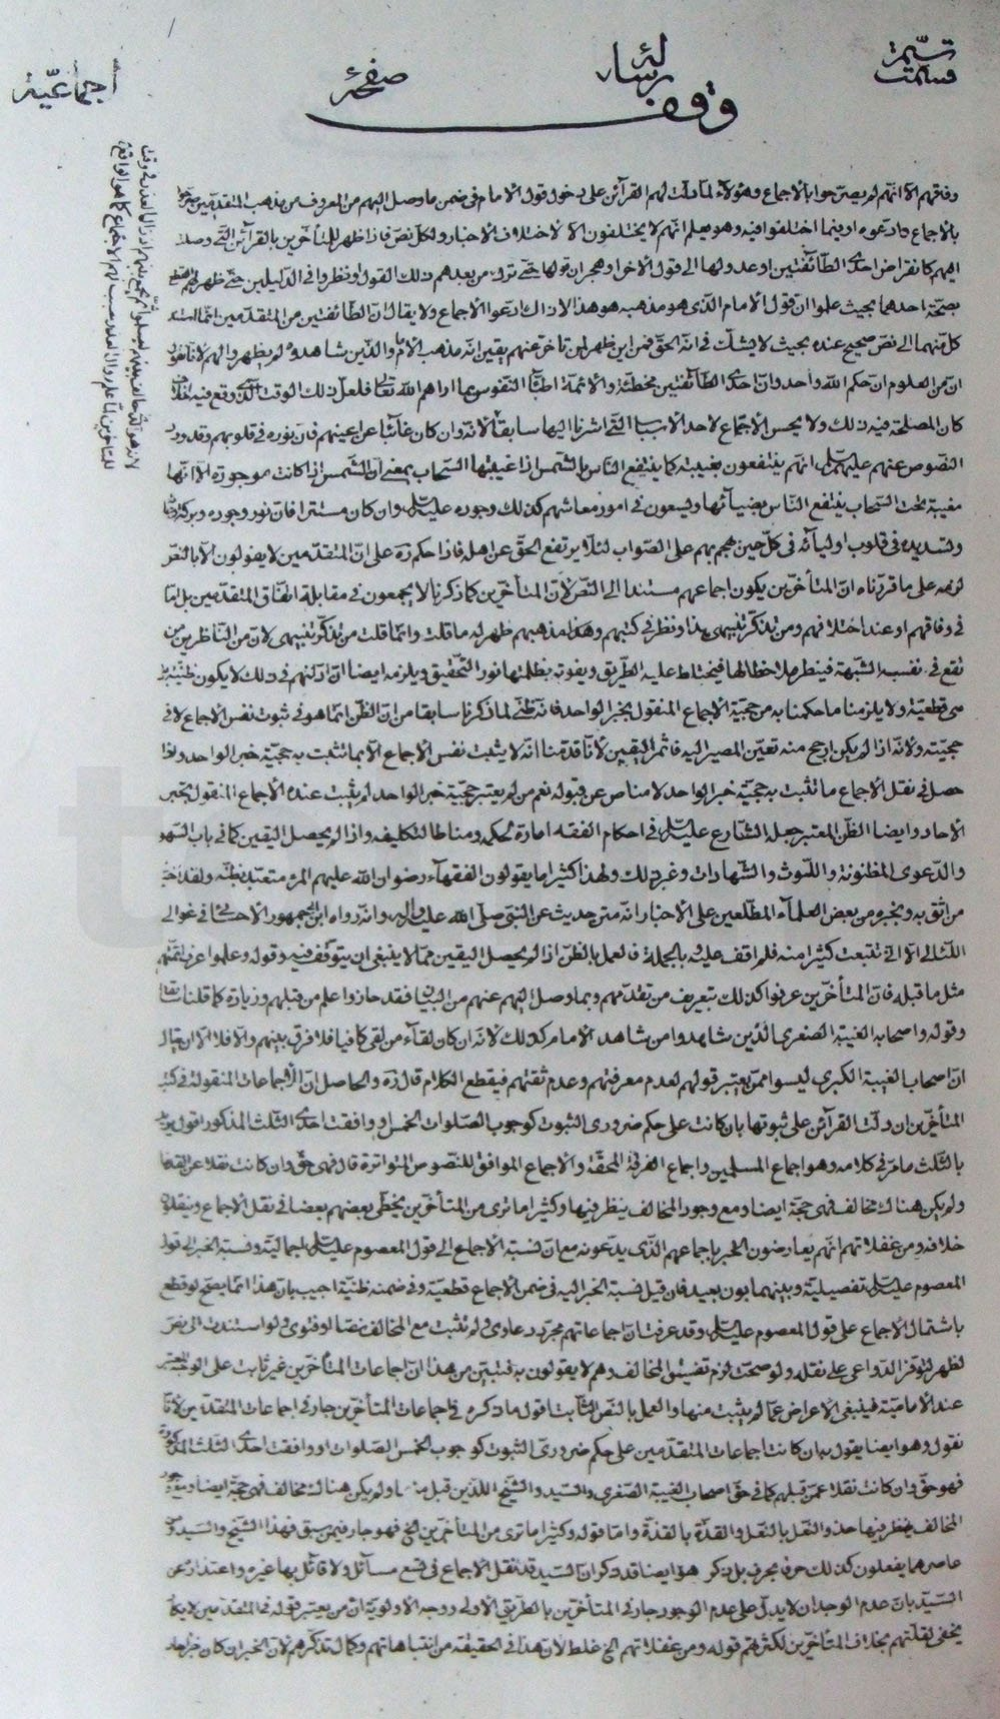 رسالة
اجماعيّة
صفحة
وقف
وفاقهم الا انهم لم يصرحوا بالاجماع وهؤلاء لما دلت لهم القرائن على دخول قول الامام في ضمن ما وصل اليهم من المعروف من مذهب المتقدمين
بالاجماع وادعوه او فيما اختلفوا فيه وهو يعلم انهم لا يختلفون الا لاختلاف الاخبار ولكل نص فاذا ظهر للمتأخرين بالقرائن التي وصلت
اليهم كانقراض احدى الطائفتين او عدولها الى قول الاخرى وهجران قولها حتى ترك من بعدهم ذلك القول او نظروا في الدليلين حتى ظهر لهم
بصحة احدهما بحيث علموا ان قول الامام الذي هو مذهبه هو هذا لا ذاك ادعوا الاجماع ولا يقال ان الطائفتين من المتقدمين انما استند
كل منهما الى نص صحيح عنده بحيث لا يشك في انه الحق فمن اين ظهر لمن تأخر عنهم يقين انه مذهب الامام والذين شاهدوه لم يظهر لهم لانا نقول
ان من المعلوم ان حكم الله واحد وان احدى الطائفتين مخطئة والائمة اطباء النفوس بما اراهم الله تعالى فلعل ذلك الوقت الذي وقع فيه
كان المصلحة فيه ذلك ولا يحسن الاجتماع لاحد الاسباب التي اشرنا اليها سابقا لانه وان كان غائبا عن اعينهم فان نوره في قلوبهم وقد ورد
النصوص عنهم عليهم السلام انهم ينتفعون بغيبته كما ينتفع الناس بالشمس اذا غيبتها السحاب بمعنى ان الشمس اذا كانت موجودة الا انها
مغيبة تحت السحاب ينتفع الناس بضيائها ويسعون في امور معاشهم كذلك وجوده عليه السلام وان كان مستترا فان نور وجوده وبركته
وتسديده في قلوب اوليائه في كل حين هجم بهم على الصواب لئلا يرتفع الحق عن اهله فاذا حكم ره على ان المتقدمين لا يقولون الا بالنص
لزمه على ما قررناه ان المتأخرين يكون اجماعهم مستندا الى النص لان المتأخرين كما ذكرنا لا يجمعون في مقابلة اتفاق المتقدمين بل اما
في وفاقهم او عند اختلافهم ومن تذكر تنبيهي هذا ونظر في كتبهم وهذا مذهبهم ظهر له ما قلت وانما قلت من تذكر تنبيهي لان من الناظرين من
تقع في نفسه الشبهة فينظر ملاحظا لها فيختلط عليه الطريق ويفوته بظلمتها نور التحقيق ويلزمه ايضا ان ادلتهم في ذلك لا يكون ظنية بل
هي قطعية ولا يلزمنا ما حكمنا به من حجية الاجماع المنقول بخبر الواحد فانه ظني لما ذكرنا سابقا من ان الظن انما هو في ثبوت نفس الاجماع لا في
حجيته ولانه اذا لم يكن ارجح منه تعين المصير اليه فاثمر اليقين لانا قدمنا انه لا يثبت نفس الاجماع الا بما تثبت به حجية خبر الواحد واذا
حصل في نقل الاجماع ما تثبت به حجية خبر الواحد لا مناص عن قبوله نعم من لم يعتبر حجية خبر الواحد لم يثبت عنده الاجماع المنقول بخبر
الاحاد وايضا الظن المعتبر جعله الشارع عليه السلام في احكام الفقه امارة لحكمه ومناطا لتكليفه واذا لم يحصل اليقين كما في باب السهو
والدعوى المظنونة واللوث والشهادات وغير ذلك ولهذا كثيرا ما يقولون الفقهاء رضوان الله عليهم المرء متعبد بظنه ولقد
من اثق به ويخبره من بعض العلماء المطلعين على الاخبار انه متن حديث عن النبي صلى الله عليه واله وانه رواه ابن الجمهور الاحسائي في غوالي
اللئالي الا اني تتبعت كثيرا منه فلم اقف عليه بالجملة فالعمل بالظن اذا لم يحصل اليقين مما لا ينبغي ان يتوقف فيه وقوله وعلموا عرف ائمتهم
مثل ما قبله فان المتأخرين عرفوا كذلك بتعريف من تقدمهم وبما وصل اليهم عنهم من البيان فقد حازوا علم من قبلهم وزيادة كما قلنا سابقا
وقوله واصحاب الغيبة الصغرى الذين شاهدوا من شاهد الامام كذلك لانه ان كان لقاء من لقي كافيا فلا فرق بينهم والا فلا الا ان يقال
ان اصحاب الغيبة الكبرى ليسوا ممن يعتبر قولهم لعدم معرفتهم وعدم ثقتهم فيقطع الكلام قال ره والحاصل ان الاجماعات المنقولة في كتب
المتأخرين ان دلت القرائن على ثبوتها بان كانت على حكم ضروري الثبوت كوجوب الصلوات الخمس او وافقت احدى الثلث المذكور اقول يريد
بالثلث ما مر في كلامه وهو اجماع المسلمين واجماع الفرقة المحقة والاجماع الموافق للنصوص المتواترة قال فهي حق وان كانت نقلا عن القدماء
ولم يكن هناك مخالف فهي حجة ايضا ومع وجود المخالف ينظر فيها وكثيرا ما ترى من المتأخرين يخطي بعضهم بعضا في نقل الاجماع وينقلون
خلافه ومن غفلاتهم انهم يعارضون الخبر باجماعهم الذي يدعونه مع ان نسبة الاجماع الى قول المعصوم عليه السلام اجمالية ونسبة الخبر الى قول
المعصوم عليه السلام تفصيلية وبينهما بون بعيد فان قيل نسبة الخبر اليه في ضمن الاجماع قطعية وفي ضمنه ظنية اجيب بان هذا انما يصح لو قطع
باشتمال الاجماع على قول المعصوم عليه السلام وقد عرفت ان اجماعاتهم مجرد دعاوى ولم تثبت مع المخالف نصا او فتوى ولو استندت الى نص
لظهر لتوفر الدواعي على نقله ولو صحت لزم تفسيق المخالف وهم لا يقولون به فتبين من هذا ان اجماعات المتأخرين غير ثابت على الوجه المعتبر
عند الامامية فينبغي الاعراض عما لم يثبت منها والعمل بالنص الثابت اقول ما ذكره في اجماعات المتأخرين جار في اجماعات المتقدمين لانا
نقول وهو ايضا يقول به ان كانت اجماعات المتقدمين على حكم ضروري الثبوت كوجوب الخمس الصلوات او وافقت احدى الثلث المذكورة
فهو حق وان كانت نقلا عمن قبلهم كما في حق اصحاب الغيبة الصغرى والسيد والشيخ اللذين قبل ولم يكن هناك مخالف فهي حجة ايضا ومع وجود
المخالف ينظر فيها حذو النعل بالنعل والقذة بالقذة واما قوله وكثيرا ما ترى من المتأخرين الخ فهو جار فيمن سبق فهذا الشيخ والسيد ومن
عاصرهما يفعلون كذلك حرف بحرف بل ذكر هو ايضا قد ذكر ان السيد قد نقل الاجماع في تسع مسائل ولا قائل بها غيره واعتذاره عن
السيد بان عدم الوجدان لا يدل على عدم الوجود جار في المتأخرين بالطريق الاولى ووجه الاولوية ان من يعتبر قوله في المتقدمين لا يكاد
يخفى لقلتهم بخلاف المتأخرين لكثرتهم قوله ومن غفلاتهم الخ غلط لان هذا في الحقيقة من انتباهاتهم وكمال تذكرهم لان الخبر ان كان خبر احاد